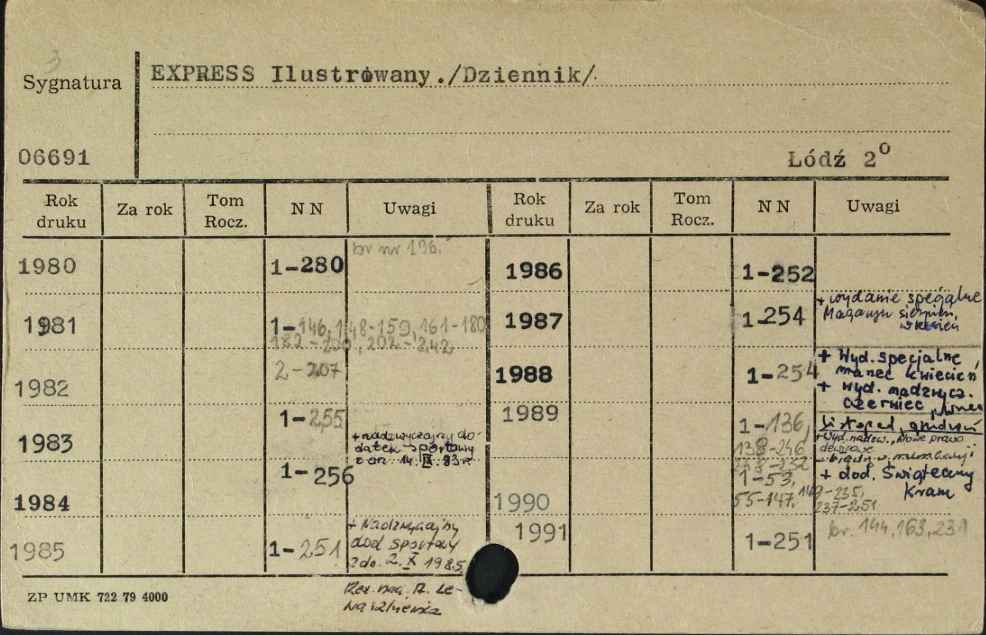 3
Sygnatura
EXPRESS Ilustrowany./Dziennik/.
06691
Łódź 2°
Rok druku Za rok Tom Rocz. N N Uwagi Rok druku Za rok Tom Rocz. N N Uwagi
1980 1-280 br nr 196.
1981 1-146, 148-159, 161-180
182-200, 202-242
1982 2-207
1983 1-255 + nadzwyczajny do-
datek sportowy
14. IX. 83 r.
1984 1-256
1985 1-251 + Nadzwyczajny
dod sportowy
2. X 1985.
1986 1-252
1987 1-254 + wydanie specjalne
Magazyn sierpień,
wrzesień
1988 1-254 + Wyd. specjalne
marzec kwiecień
+ wyd. nadzwycz.
czerwiec,
listopad, grudzień
1989 1-136,
138-246
1990 1-53,
55-147, 149-235,
237-251
+ dod. Świąteczny
Kram
1991 1-251 br. 144, 163, 231
ZP UMK 722 79 4000